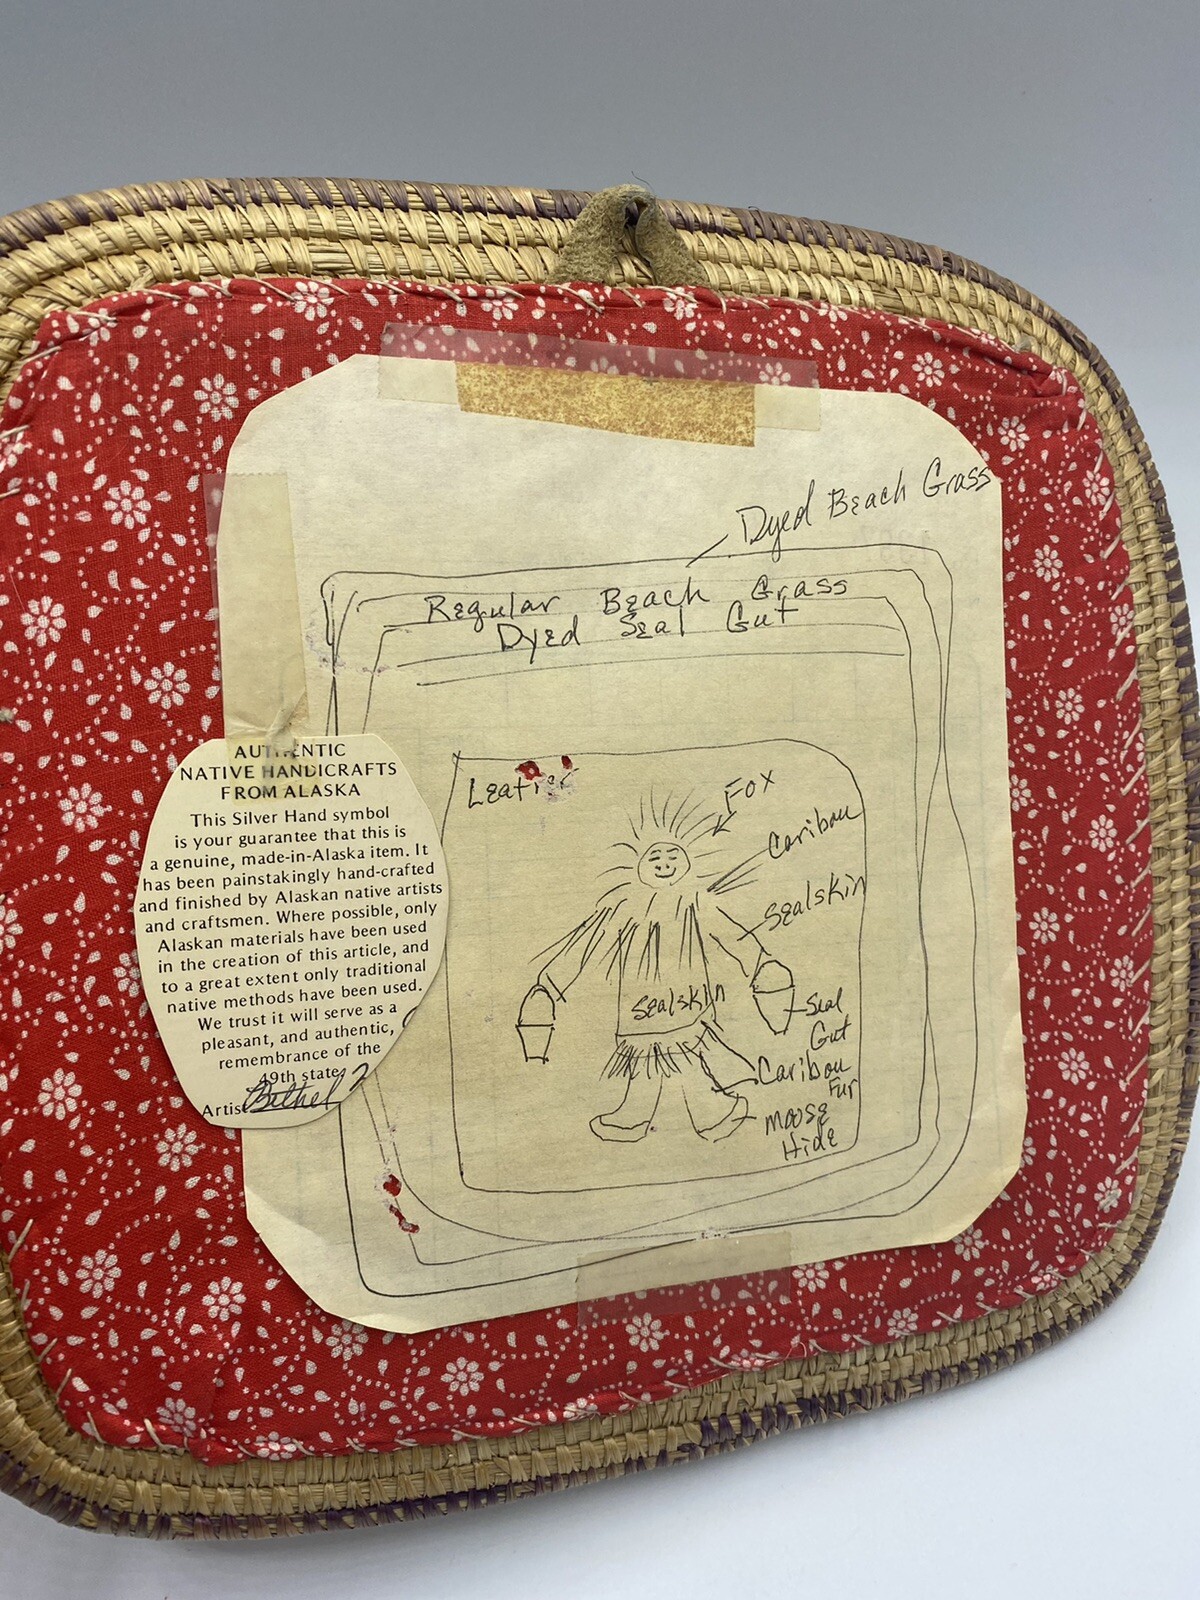 Dyed Beach Grass
Regular Beach Grass
Dyed Seal Gut
Leather
Fox
Caribou
Sealskin
Sealskin
Seal
Gut
Caribou
Fur
Moose
Hide
AUTHENTIC
NATIVE HANDICRAFTS
FROM ALASKA
This Silver Hand symbol
is your guarantee that this is
a genuine, made-in-Alaska item. It
has been painstakingly hand-crafted
and finished by Alaskan native artists
and craftsmen. Where possible, only
Alaskan materials have been used
in the creation of this article, and
to a great extent only traditional
native methods have been used.
We trust it will serve as a
pleasant, and authentic,
remembrance of the
49th state
Artist Bethel ?